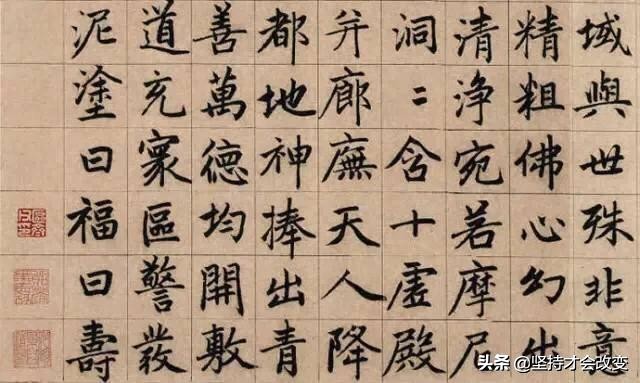 域與世殊非意
精粗佛心幻出
清淨宛若摩尼
洞〻含十虛殿
并廊廡天人降
都地神捧出青
善萬德均開敷
道充寰區警發
泥塗曰福曰壽
头条 @坚持才会改变